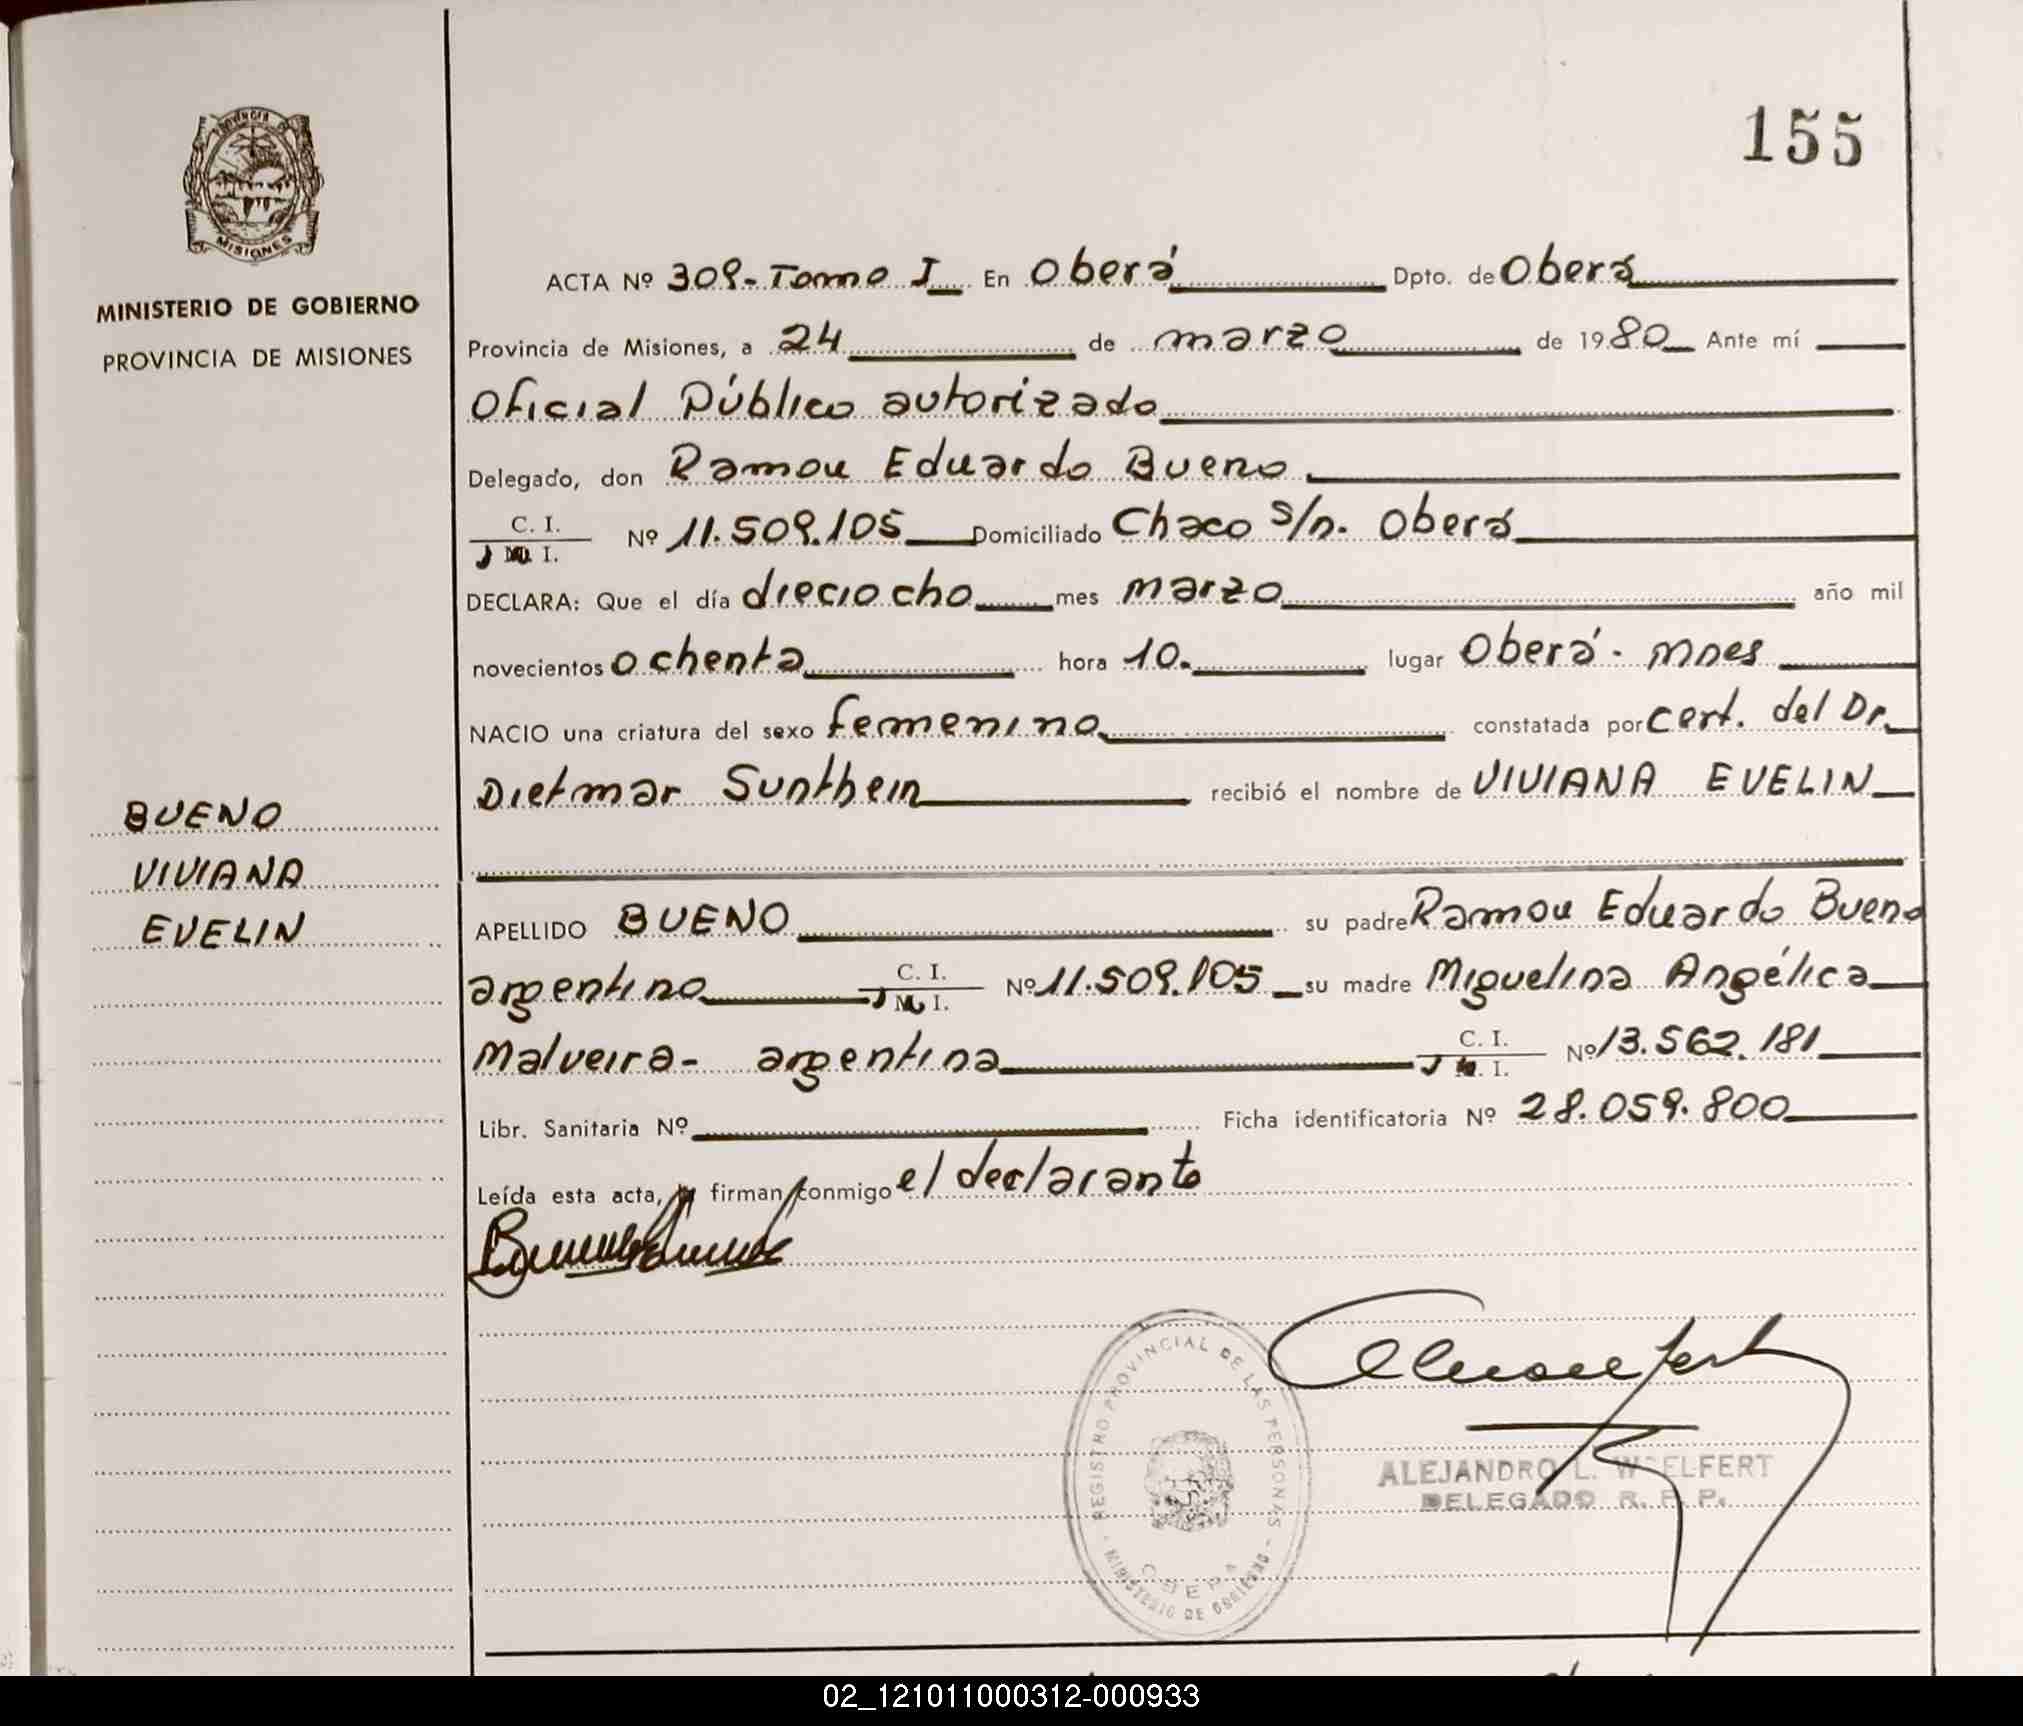 155
PROVINCIA DE
MISIONES
MINISTERIO DE GOBIERNO
PROVINCIA DE MISIONES
ACTA Nº 309 - Tomo I En Oberá Dpto. de Oberá
Provincia de Misiones, a 24 de marzo de 1980 Ante mí
Oficial Público autorizado
Delegado, don Ramon Eduardo Bueno
C. I.
M. I. Nº 11.509.105 Domiciliado Chaco s/n. Oberá
DECLARA: Que el día dieciocho mes marzo año mil
novecientos ochenta hora 10. lugar Oberá - Mnes
NACIO una criatura del sexo femenino constatada por cert. del Dr.
Dietmar Sunthein recibió el nombre de VIVIANA EVELIN
BUENO
VIVIANA
EVELIN
APELLIDO BUENO su padre Ramon Eduardo Bueno
argentino C. I.
M. I. Nº 11.509.105 su madre Miguelina Angélica
Malveira - argentina C. I.
M. I. Nº 13.562.181
Libr. Sanitaria Nº Ficha identificatoria Nº 28.059.800
Leída esta acta, firman conmigo el declarante
REGISTRO PROVINCIAL DE LAS PERSONAS
OBERA
MINISTERIO DE GOBIERNO
ALEJANDRO L. WOELFERT
DELEGADO R. P. P.
02_121011000312-000933